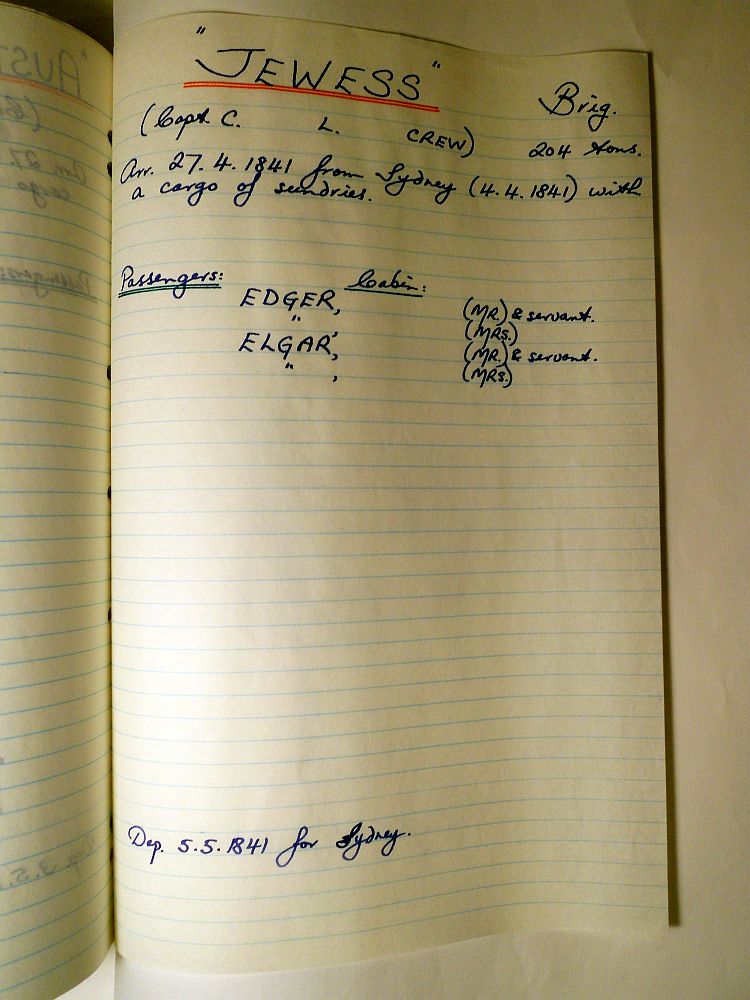 "JEWESS" Brig.
(Capt. C. L. CREW) 204 tons.
Arr. 27.4.1841 from Sydney (4.4.1841) with
a cargo of sundries.
Passengers: Cabin:
EDGER, (MR.) & servant.
" , (MRS.)
ELGAR, (MR.) & servant.
" , (MRS.)
Dep. 5.5.1841 for Sydney.